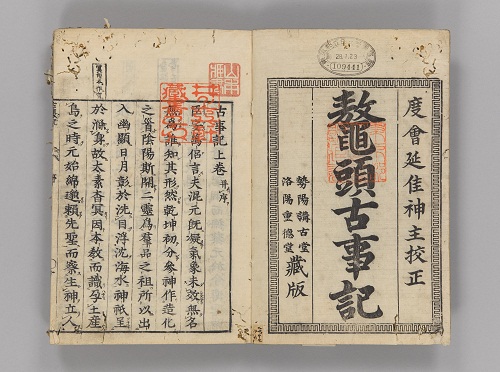 度會延佳神主校正
鼇頭古事記
勢陽講古堂
洛陽重德堂藏版
109441
古事記上卷 并序
臣安萬侶言夫混元既凝氣象未效無名
無爲誰知其形然乾坤初分參神作造化
之首陰陽斯開二靈爲羣品之祖所以出
入幽顯日月彰於洗目浮沈海水神祇呈
於滌身故太素杳冥因本教而識孕土産
嶋之時元始綿邈頼先聖而察生神立人